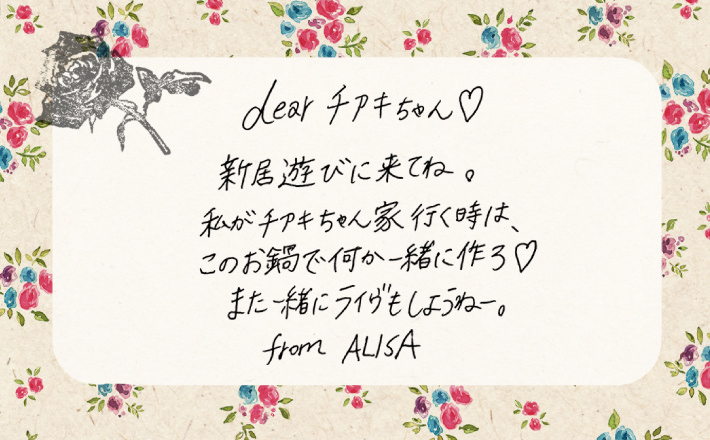 dear チアキちゃん♡
新居遊びに来てね。
私がチアキちゃん家行く時は、
このお鍋で何か一緒に作ろ♡
また一緒にライヴもしようねー。
from ALISA